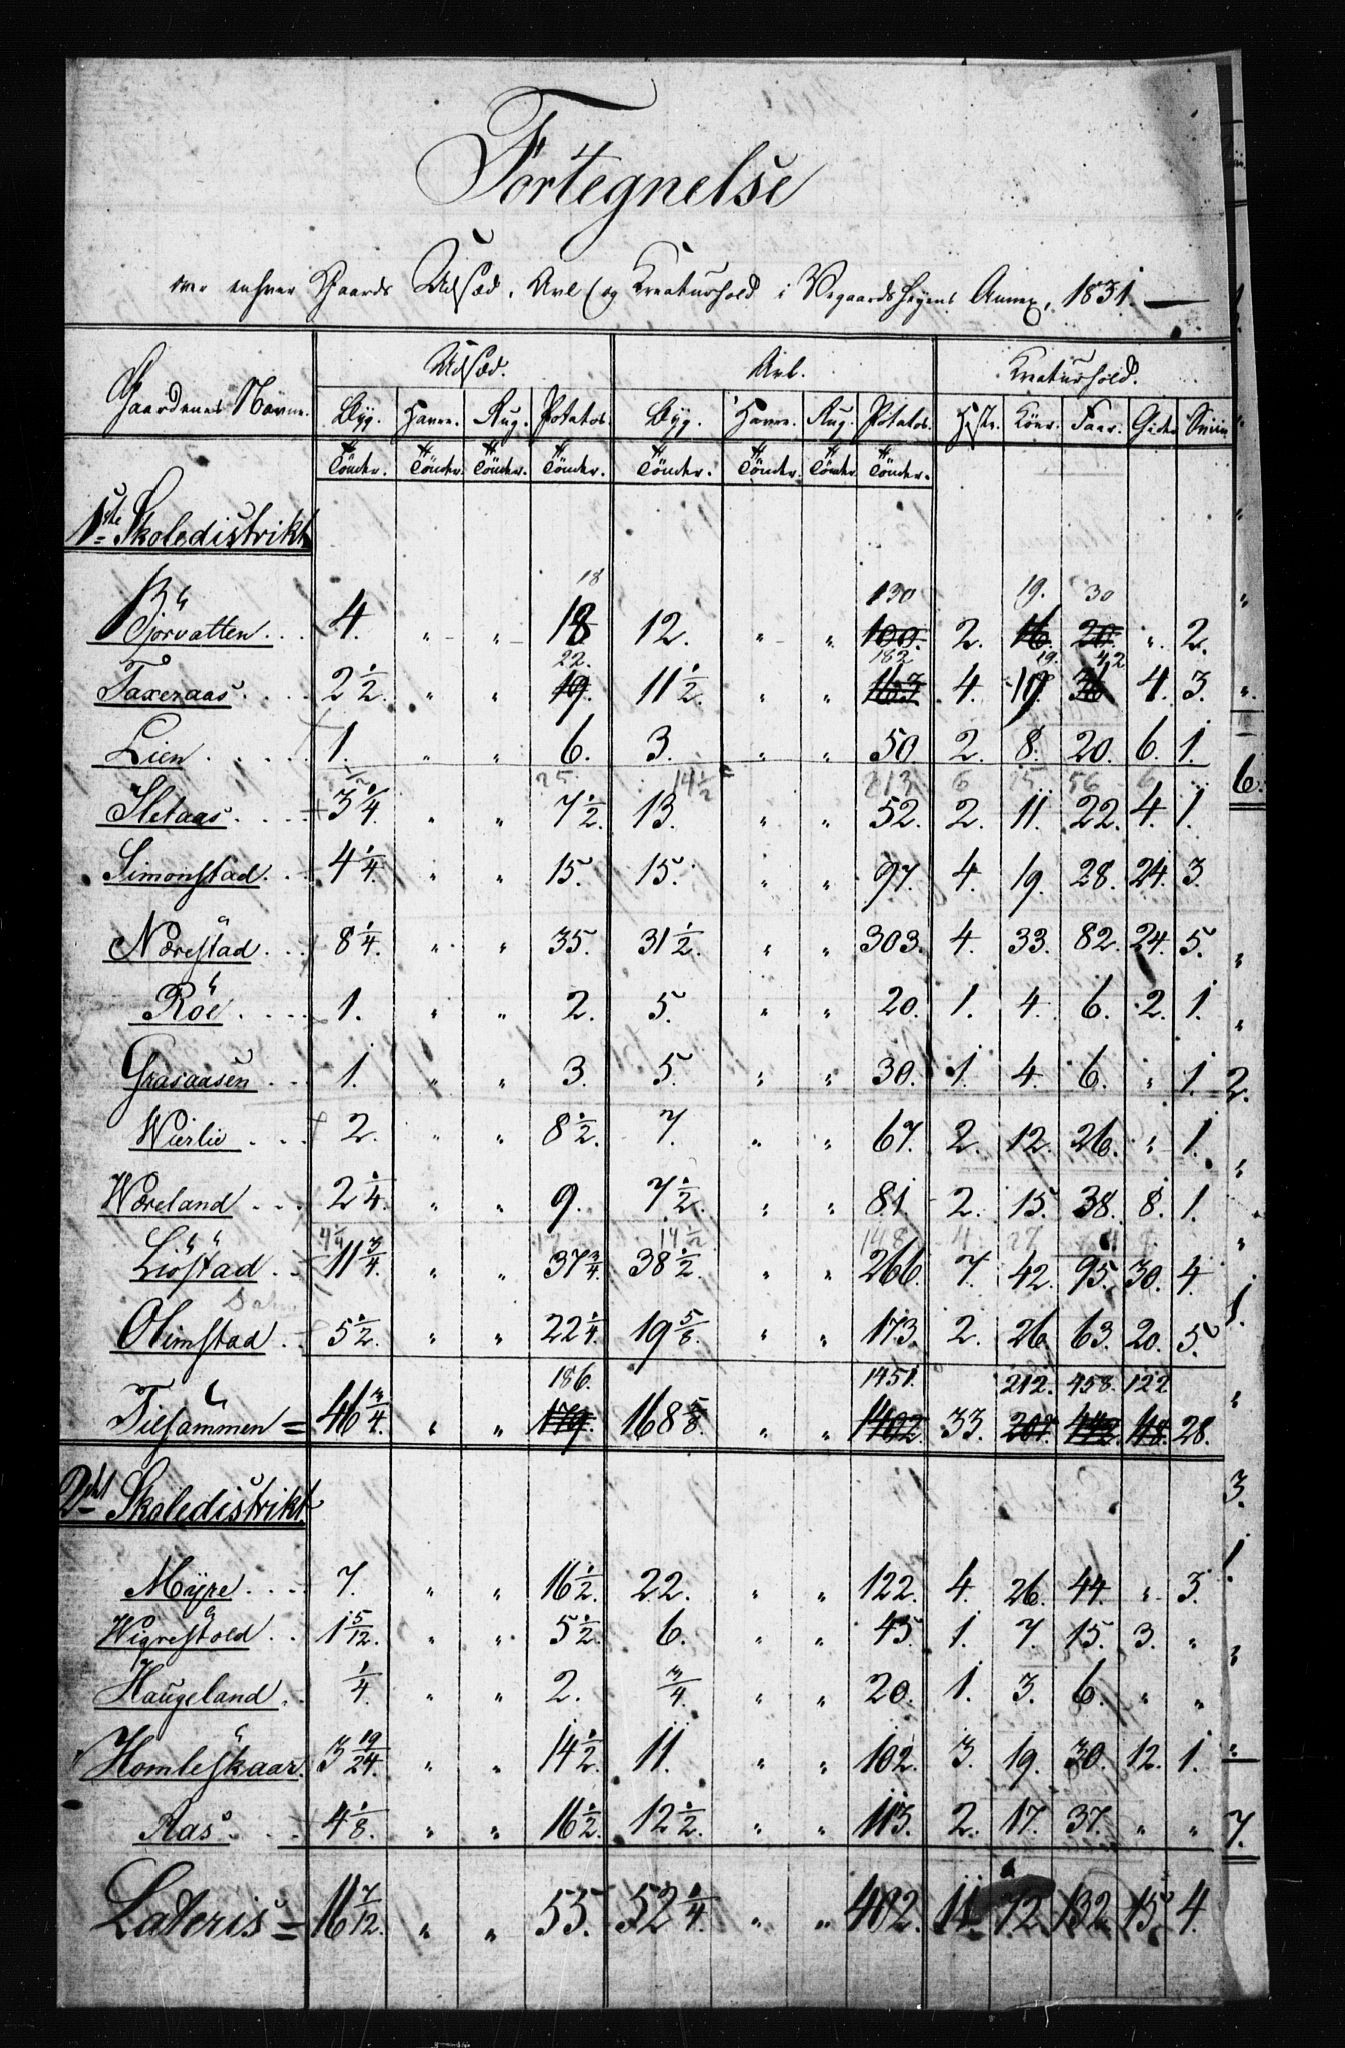 Fortegnelse
over enhver Gaards Udsæd, Avl og Kreaturhold i Vegaardsheyens Annex, 1831.
Udsæd. Avl. Kreaturhold.
Gaardenes Navne. Byg. Havre. Rug. Potatos. Byg. Havre. Rug. Potatos. Heste. Köer. Faar. Geder Sviin
Tönder. Tönder. Tönder. Tönder. Tönder. Tönder. Tönder. Tönder.
1ste Skoledistrikt
18 130 19. 30
4. " " 18 12. " " 100. 2. 16. 20. " 2.
22. 182 19. 42
Taxeraas. 2 1/2. " " 19. 11 1/2 " " 163 4. 17. 36 4. 3.
Lien 1. " " 6. 3. " " 50. 2. 8. 20. 6. 1.
25. 14 1/2 213 6 25 56 6
Sletaas 3 3/4. " " 7 1/2. 13. " " 52. 2. 11. 22. 4. 1.
Simonstad. 4 1/4. " " 15. 15. " " 97. 4. 19. 28. 24. 3.
Nærestad 8 1/4. " " 35. 31 1/2. " " 303. 4. 33. 82. 24. 5.
Röe 1. " " 2. 5. " " 20. 1. 4. 6. 2. 1.
Grasaasen 1. " " 3. 5. " " 30. 1. 4. 6. " 1.
Wierlie 2. " " 8 1/2. 7. " " 67. 2. 12. 26. " 1.
Wæreland 2 1/4. " " 9. 7 1/2. " " 81 2. 15. 38. 8. 1.
4 1/4 14 1/2 148 4 27
Liöstad 11 3/4. " " 37 3/4. 38 1/2 " " 266. 7. 42. 95. 30. 4.
Olimstad 5 1/2. " " 22 1/4. 19 5/8. " " 173. 2. 26 63. 20. 5.
186. 1451. 212. 458. 122
Tilsammen = 46 3/4. " " 179. 168 5/8. " " 1402. 33. 207. 448. 118. 28.
2det Skoledistrikt
Myre 7. " " 16 1/2. 22. " " 122. 4. 26. 44. " 3.
Wigrestold 1 5/12. " " 5 1/2. 6. " " 45. 1. 7. 15. 3. "
Haugeland 1/4. " " 2. 3/4. " " 20. 1. 3. 6. " "
Homleskaar. 3 19/24. " " 14 1/2. 11. " " 102. 3. 19. 30. 12. 1.
Aas 4 1/8. " " 16 1/2. 12 1/2. " " 113. 2. 17. 37. " "
Lateris = 16 7/12. " " 55. 52 1/4. " " 402. 11. 72. 132. 15. 4.